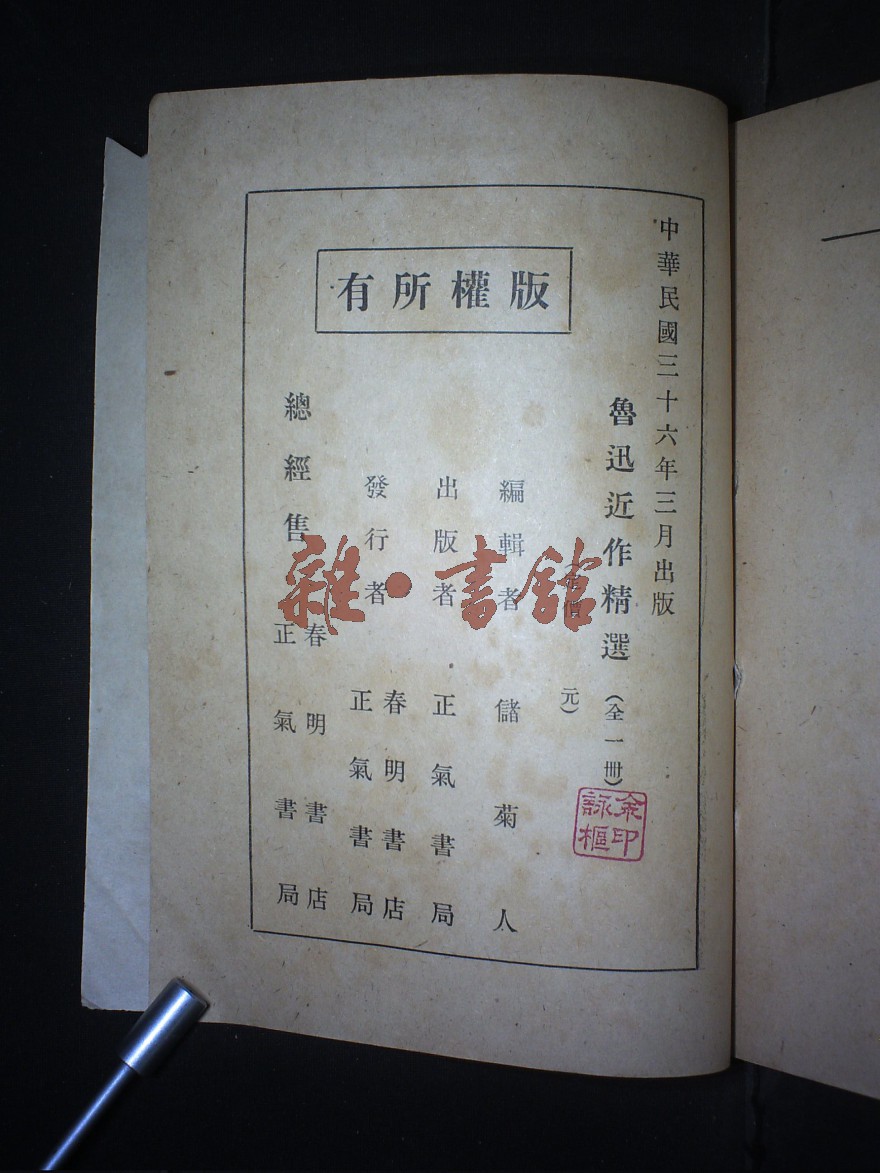 中華民國三十六年三月出版
魯迅近作精選(全一冊)
(定價 元)
編輯者 儲菊人
出版者 正氣書局
發行者 春明書店
正氣書局
總經售 春明書店
正氣書局
版權所有
雜·書館
詠樞
印